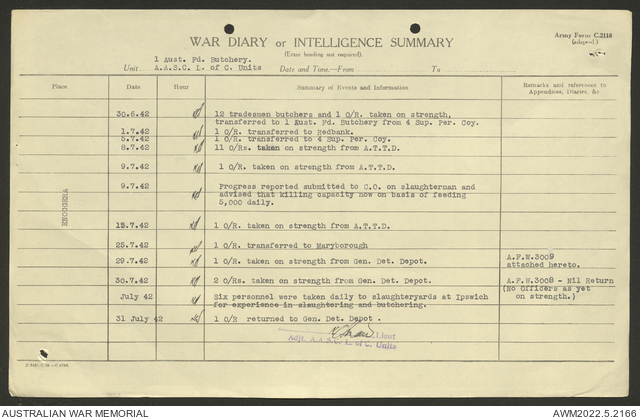 Army Form C.2118
(adapted.)
WAR DIARY or INTELLIGENCE SUMMARY
(Erase heading not required).
1 Aust. Fd. Butchery.
Unit A.A.S.C. L. of C. Units Date and Time.—From To
Place Date Hour Summary of Events and Information Remarks and references to
Appendices, Diaries, &c
ENOGGERA
30.6.42 12 tradesmen butchers and 1 O/R. taken on strength,
transferred to 1 Aust. Fd. Butchery from 4 Sup. Per. Coy.
1.7.42 1 O/R. transferred to Redbank.
5.7.42 1 O/R. transferred to 4 Sup. Per. Coy.
8.7.42 11 O/Rs. taken on strength from A.T.T.D.
9.7.42 1 O/R. taken on strength from A.T.T.D.
9.7.42 Progress reported submitted to C.O. on slaughterman and
advised that killing capacity now on basis of feeding
5,000 daily.
15.7.42 1 O/R. taken on strength from A.T.T.D.
25.7.42 1 O/R. transferred to Maryborough
29.7.42 1 O/R. taken on strength from Gen. Det. Depot. A.F.W.3009
attached hereto.
30.7.42 2 O/Rs. taken on strength from Gen. Det. Depot. A.F.W.3009 - Nil Return
(No officers as yet
on strength.)
July 42 Six personnel were taken daily to slaughteryards at Ipswich
for experience in slaughtering and butchering.
31 July 42 1 O/R returned to Gen. Det. Depot .
Lieut
Adjt. A.A.S.C. L. of C. Units
AUSTRALIAN WAR MEMORIAL AWM2022.5.2166